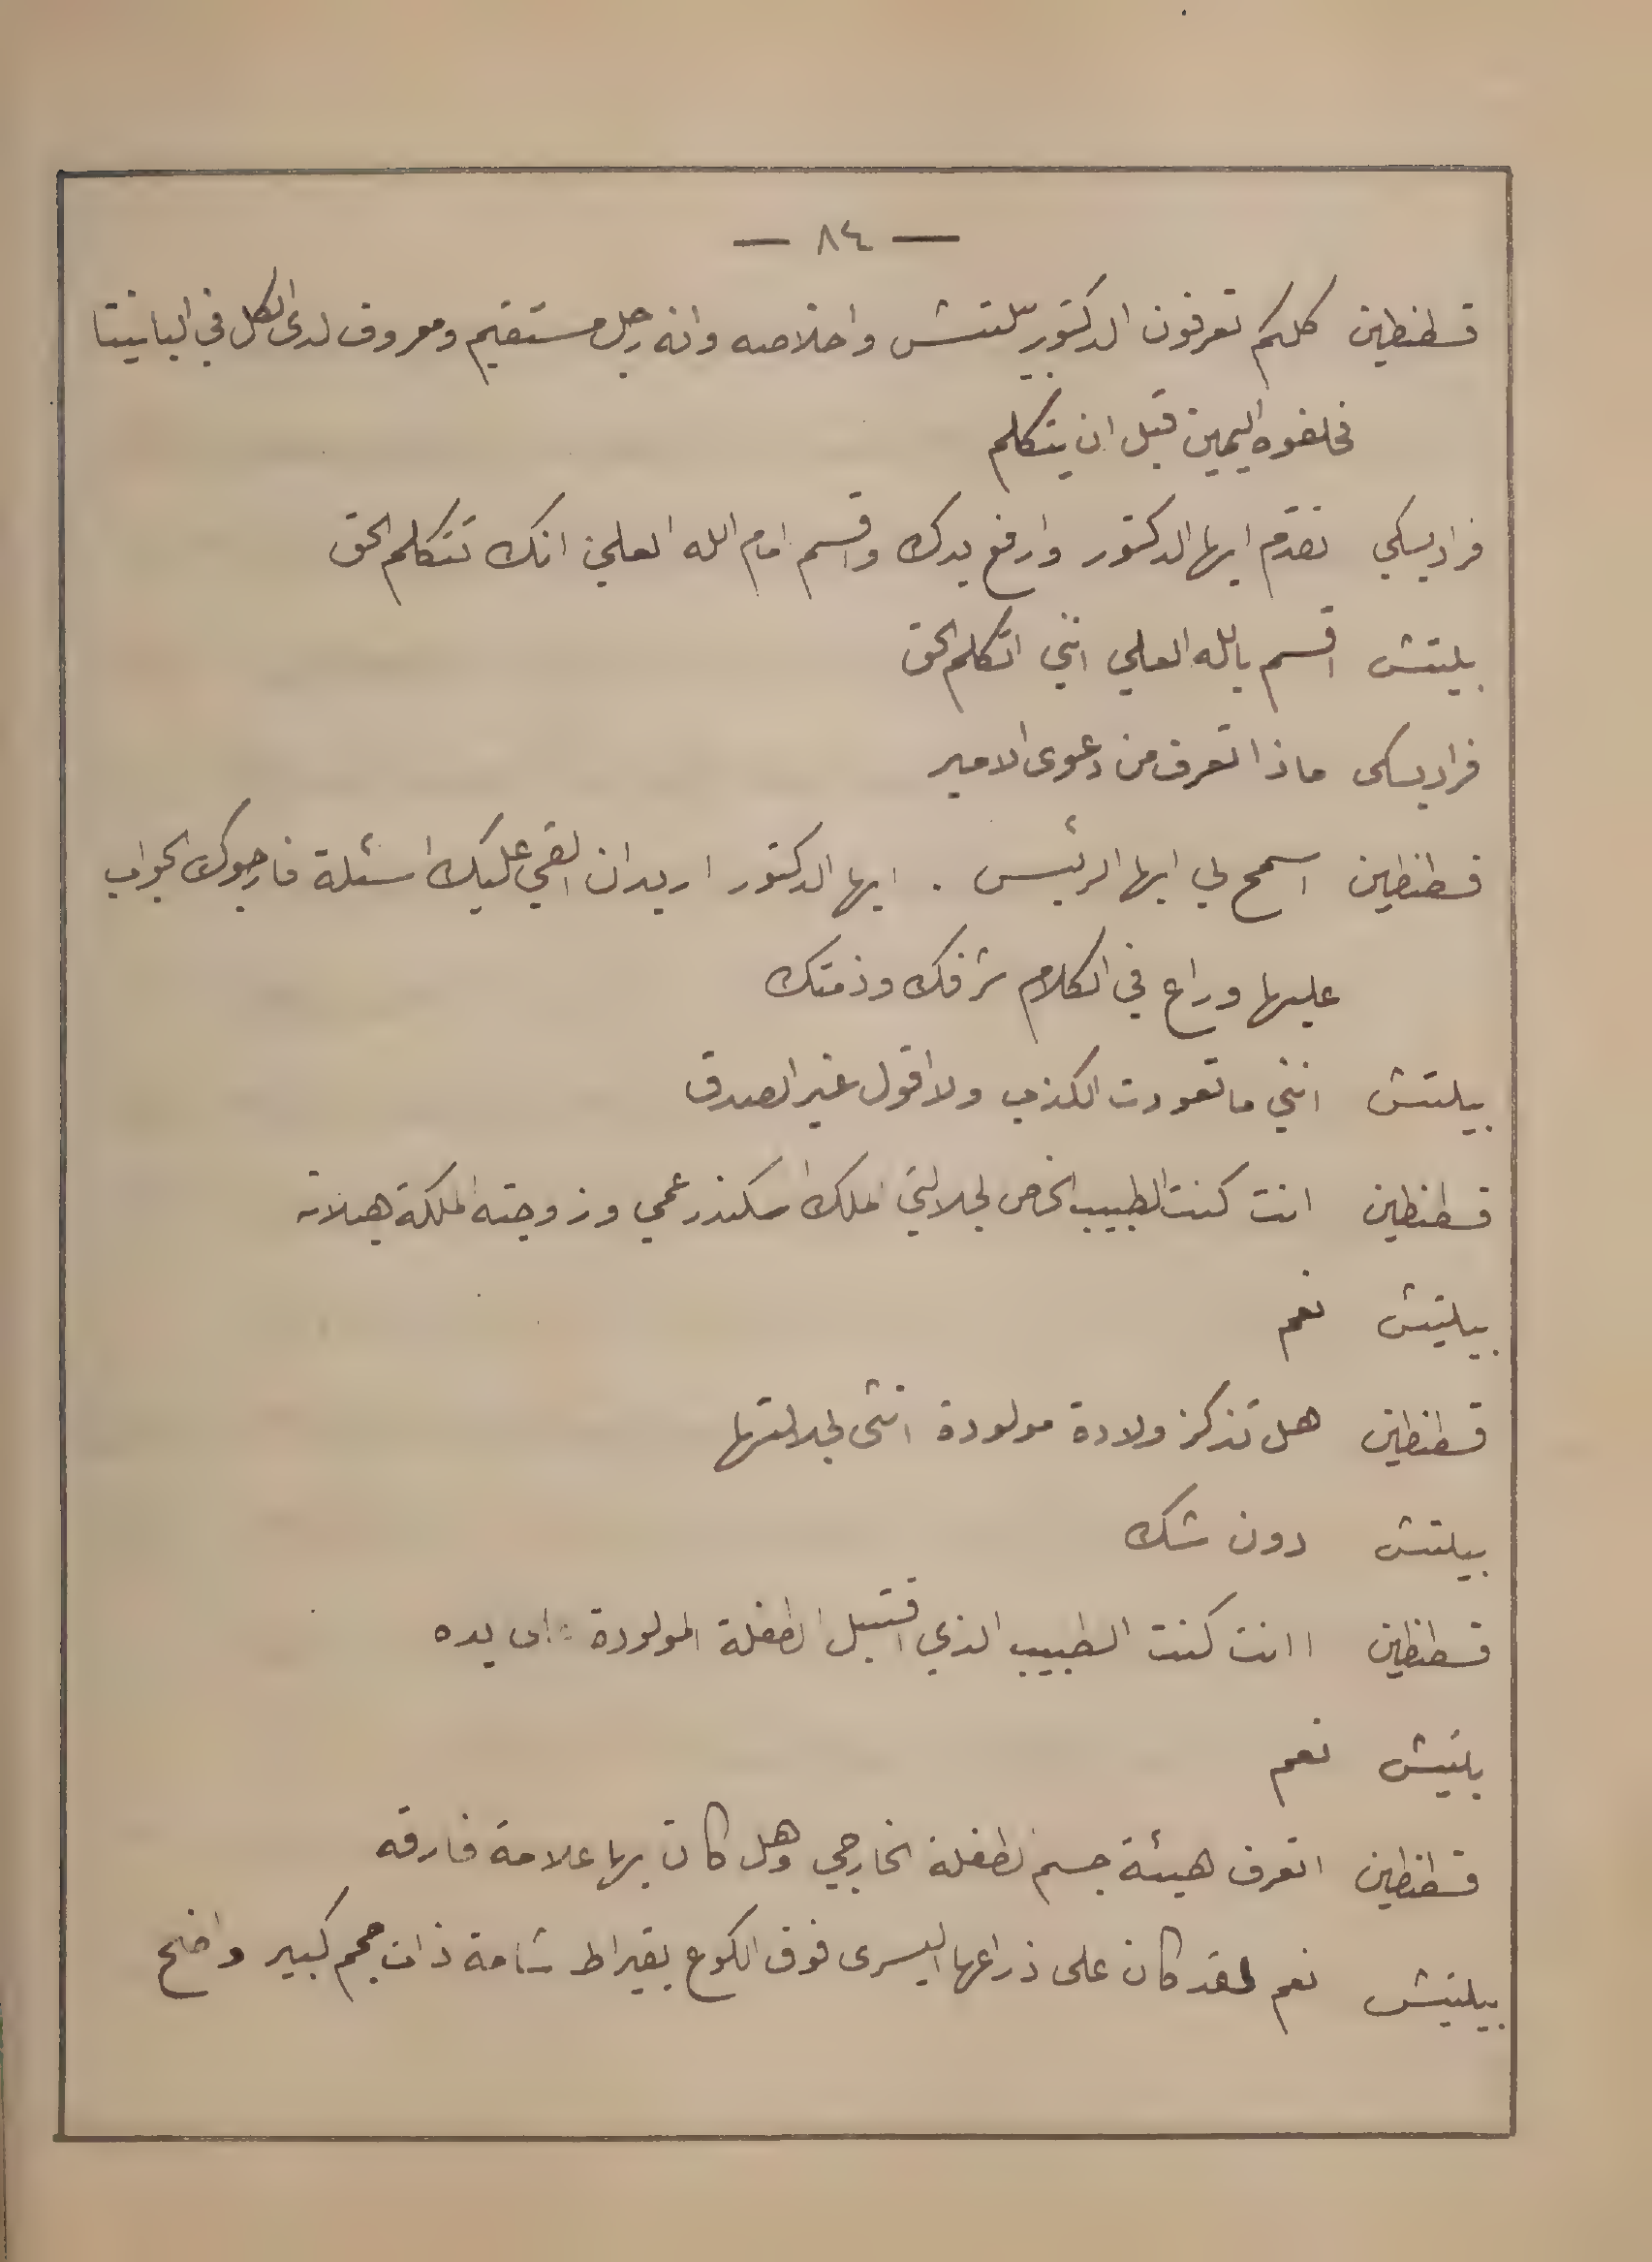 — ٨٤ —
قسطنطين كلكم تعرفون الدكتور بيلتتش واخلاصه وانه رجل مستقيم ومعروف لدى الكل في البانيتا
فحلفوه اليمين قبل ان يتكلم
فراديسكي تقدم ايها الدكتور وارفع يدك واقسم امام الله العلي انك تتكلم الحق
بلتتش اقسم بالله العلي انني اتكلم الحق
فراديسكى ماذا تعرف من دعوى الامير
قسطنطين اسمح لي ايها الرئيس . ايها الدكتور اريد ان القي عليك اسئلة فارجوك الجواب
عليها وراع في الكلام شرفك وذمتك
بيلتتش انني ما تعودت الكذب ولا اقول غير الصدق
قسطنطين انت كنت الطبيب الخاص لجلالتي الملك اسكندر عمي وزوجته الملكة هيلانة
بيلتتش نعم
قسطنطين هل تذكر ولادة مولودة انثى لجلالتها
بيلتتش دون شك
قسطنطين اانت كنت الطبيب الذي اقتبل الطفلة المولودة على يده
بلتيش نعم
قسطنطين اتعرف هيئة جسم الطفلة الخارجي وهل كان بها علامة فارقه
بيلتتش نعم لقد كان على ذراعها اليسرى فوق الكوع بقيراط شامة ذات حجم كبير واضح